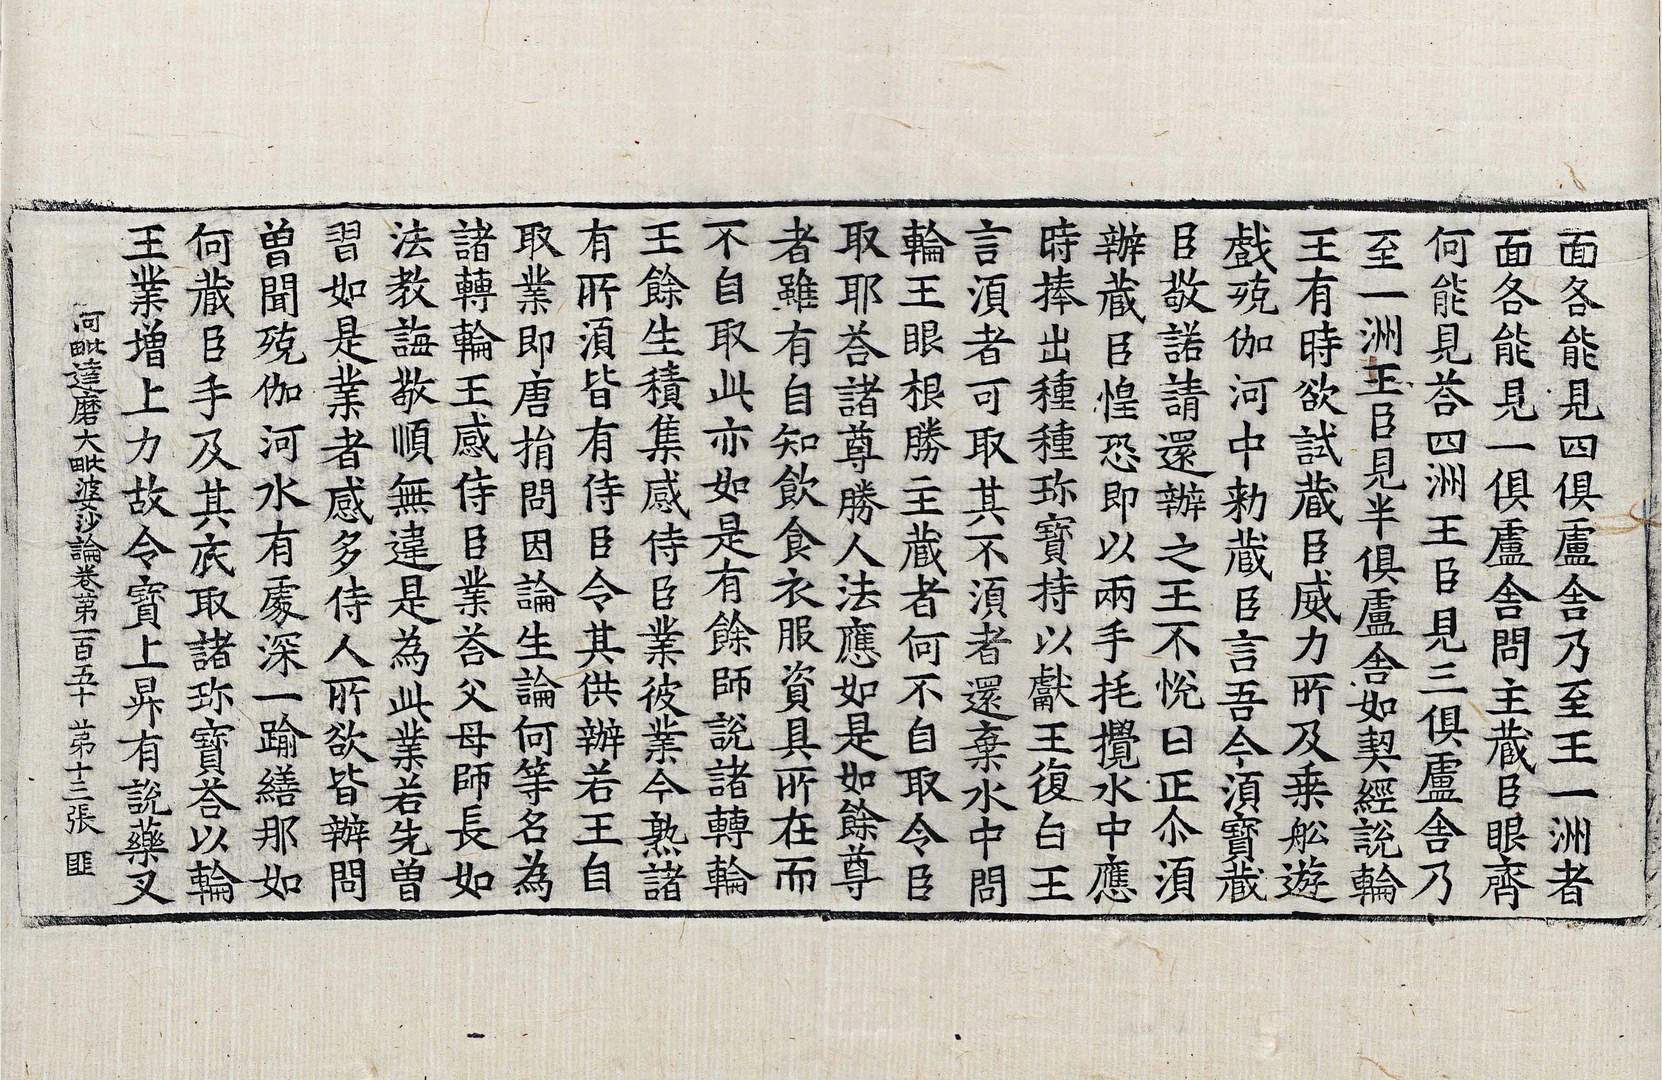 面各能見四俱盧舍乃至王一洲者
面各能見一俱盧舍問主藏臣眼齊
何能見荅四洲王臣見三俱盧舍乃
至一洲王臣見半俱盧舍如契經說輪
王有時欲試藏臣威力所及乗舩遊
戲殑伽河中勑藏臣言吾今湏寶藏
臣敬諾請還辦之王不悅曰正尒湏
辦藏臣惶恐即以兩手托攪水中應
時捧出種種珎寶持以獻王復白王
言湏者可取其不湏者還棄水中問
輪王眼根勝主藏者何不自取令臣
取耶荅諸尊勝人法應如是如餘尊
者雖有自知飲食衣服資具所在而
不自取此亦如是有餘師說諸轉輪
王餘生積集感侍臣業彼業今熟諸
有所湏皆有侍臣令其供辦若王自
取業即唐捐問因論生論何等名為
諸轉輪王感侍臣業荅父母師長如
法教誨敬順無違是為此業若先曽
習如是業者感多侍人所欲皆辦問
曽聞殑伽河水有處深一踰繕那如
何藏臣手及其底取諸珎寶荅以輪
王業增上力故令寶上昇有說藥叉
阿毗達磨大毗婆沙論卷第一百五十 苐十三張 匪